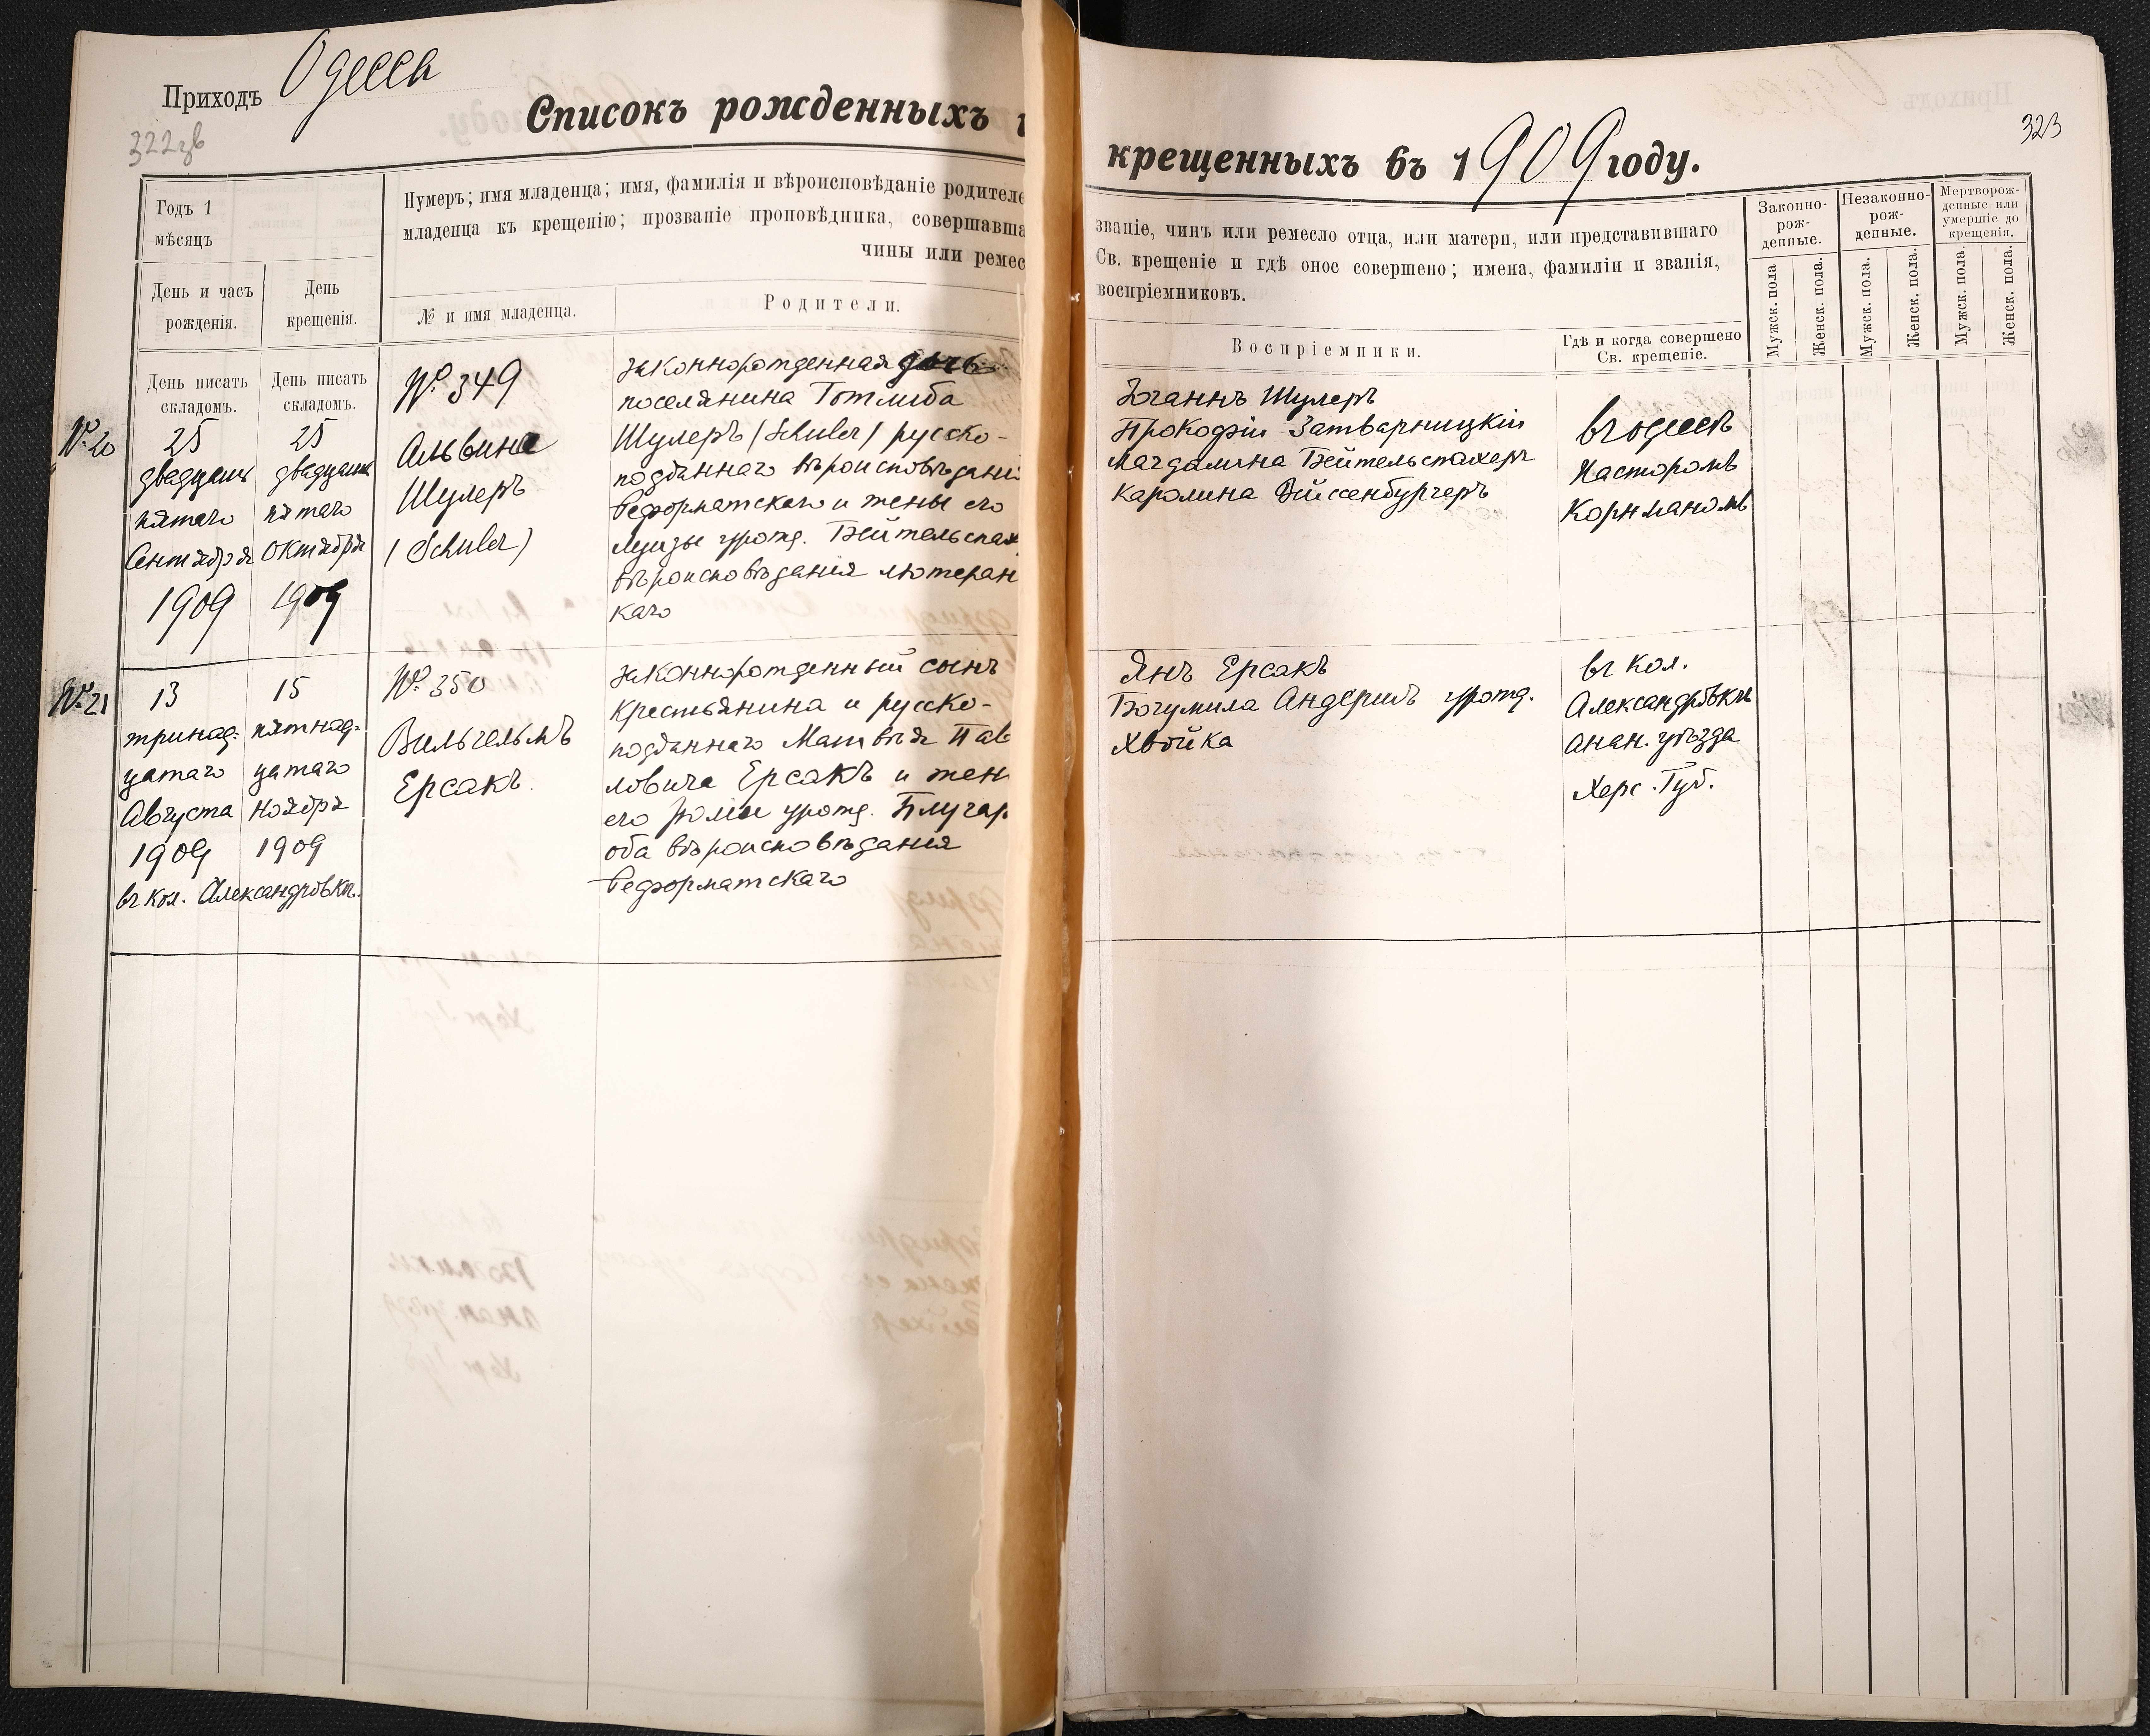 Приходъ Одесса
322зв
Списокъ рожденныхъ и
Годъ 1
мѣсяцъ
Нумеръ; имя младенца; имя, фамилія и вѣроисповѣданіе родителе
младенца къ крещенію; прозваніе проповѣдника, совершавша
чины или ремес
День и часъ
рожденія.
День
крещенія.
№ и имя младенца.
Родители.
День писать
складомъ.
День писать
складомъ.
№ 20
25
двадцать
пятаго
Сентября
1909
25
двадцать
пятаго
Октября
1909
№ 349
Альвина
Шулеръ
(Schuler)
Законнорожденная дочь
поселянина Готлиба
Шулеръ (Schuler) русско-
подданнаго вѣроисповѣдані
Реформатскаго и жены его
Луизы урожд. Бейтельспах
вѣроисповѣдания лютеран
скаго
№ 21
13
тринад-
цатаго
Августа
1909
15
пятнад-
цатаго
Ноября
1909
въ кол. Александровкѣ.
№ 350
Вильгельмъ
Ерсакъ.
Законнорожденный сынъ
крестьянина и русско-
подданнаго Матвѣя Пав
ловича Ерсакъ и жен
его Розы урожд. Плугар
оба вѣроисповѣдания
Реформатскаго
323
крещенныхъ въ 1909 году.
званіе, чинъ или ремесло отца, или матери, или представившаго
Св. крещеніе и гдѣ оное совершено; имена, фамиліи и званія,
воспріемниковъ.
Законно-
рож-
денные.
Незаконно-
рож-
денные.
Мертворож-
денные или
умершіе до
крещенія.
Воспріемники.
Гдѣ и когда совершено
Св. крещеніе.
Мужск. пола
Женск. пола.
Мужск. пола.
Женск. пола.
Мужск. пола.
Женск. пола.
Іоганнъ Шулеръ
Прокофій Затварницкій
Магдалина Бейтельспахеръ
Каролина Вейссенбургеръ
въ Одессѣ
Пасторомъ
Корнманомъ
Янъ Ерсакъ
Богумила Андершъ урожд.
Хвойка
въ кол.
Александровкѣ
Анан. уѣзда
Херс. Губ.